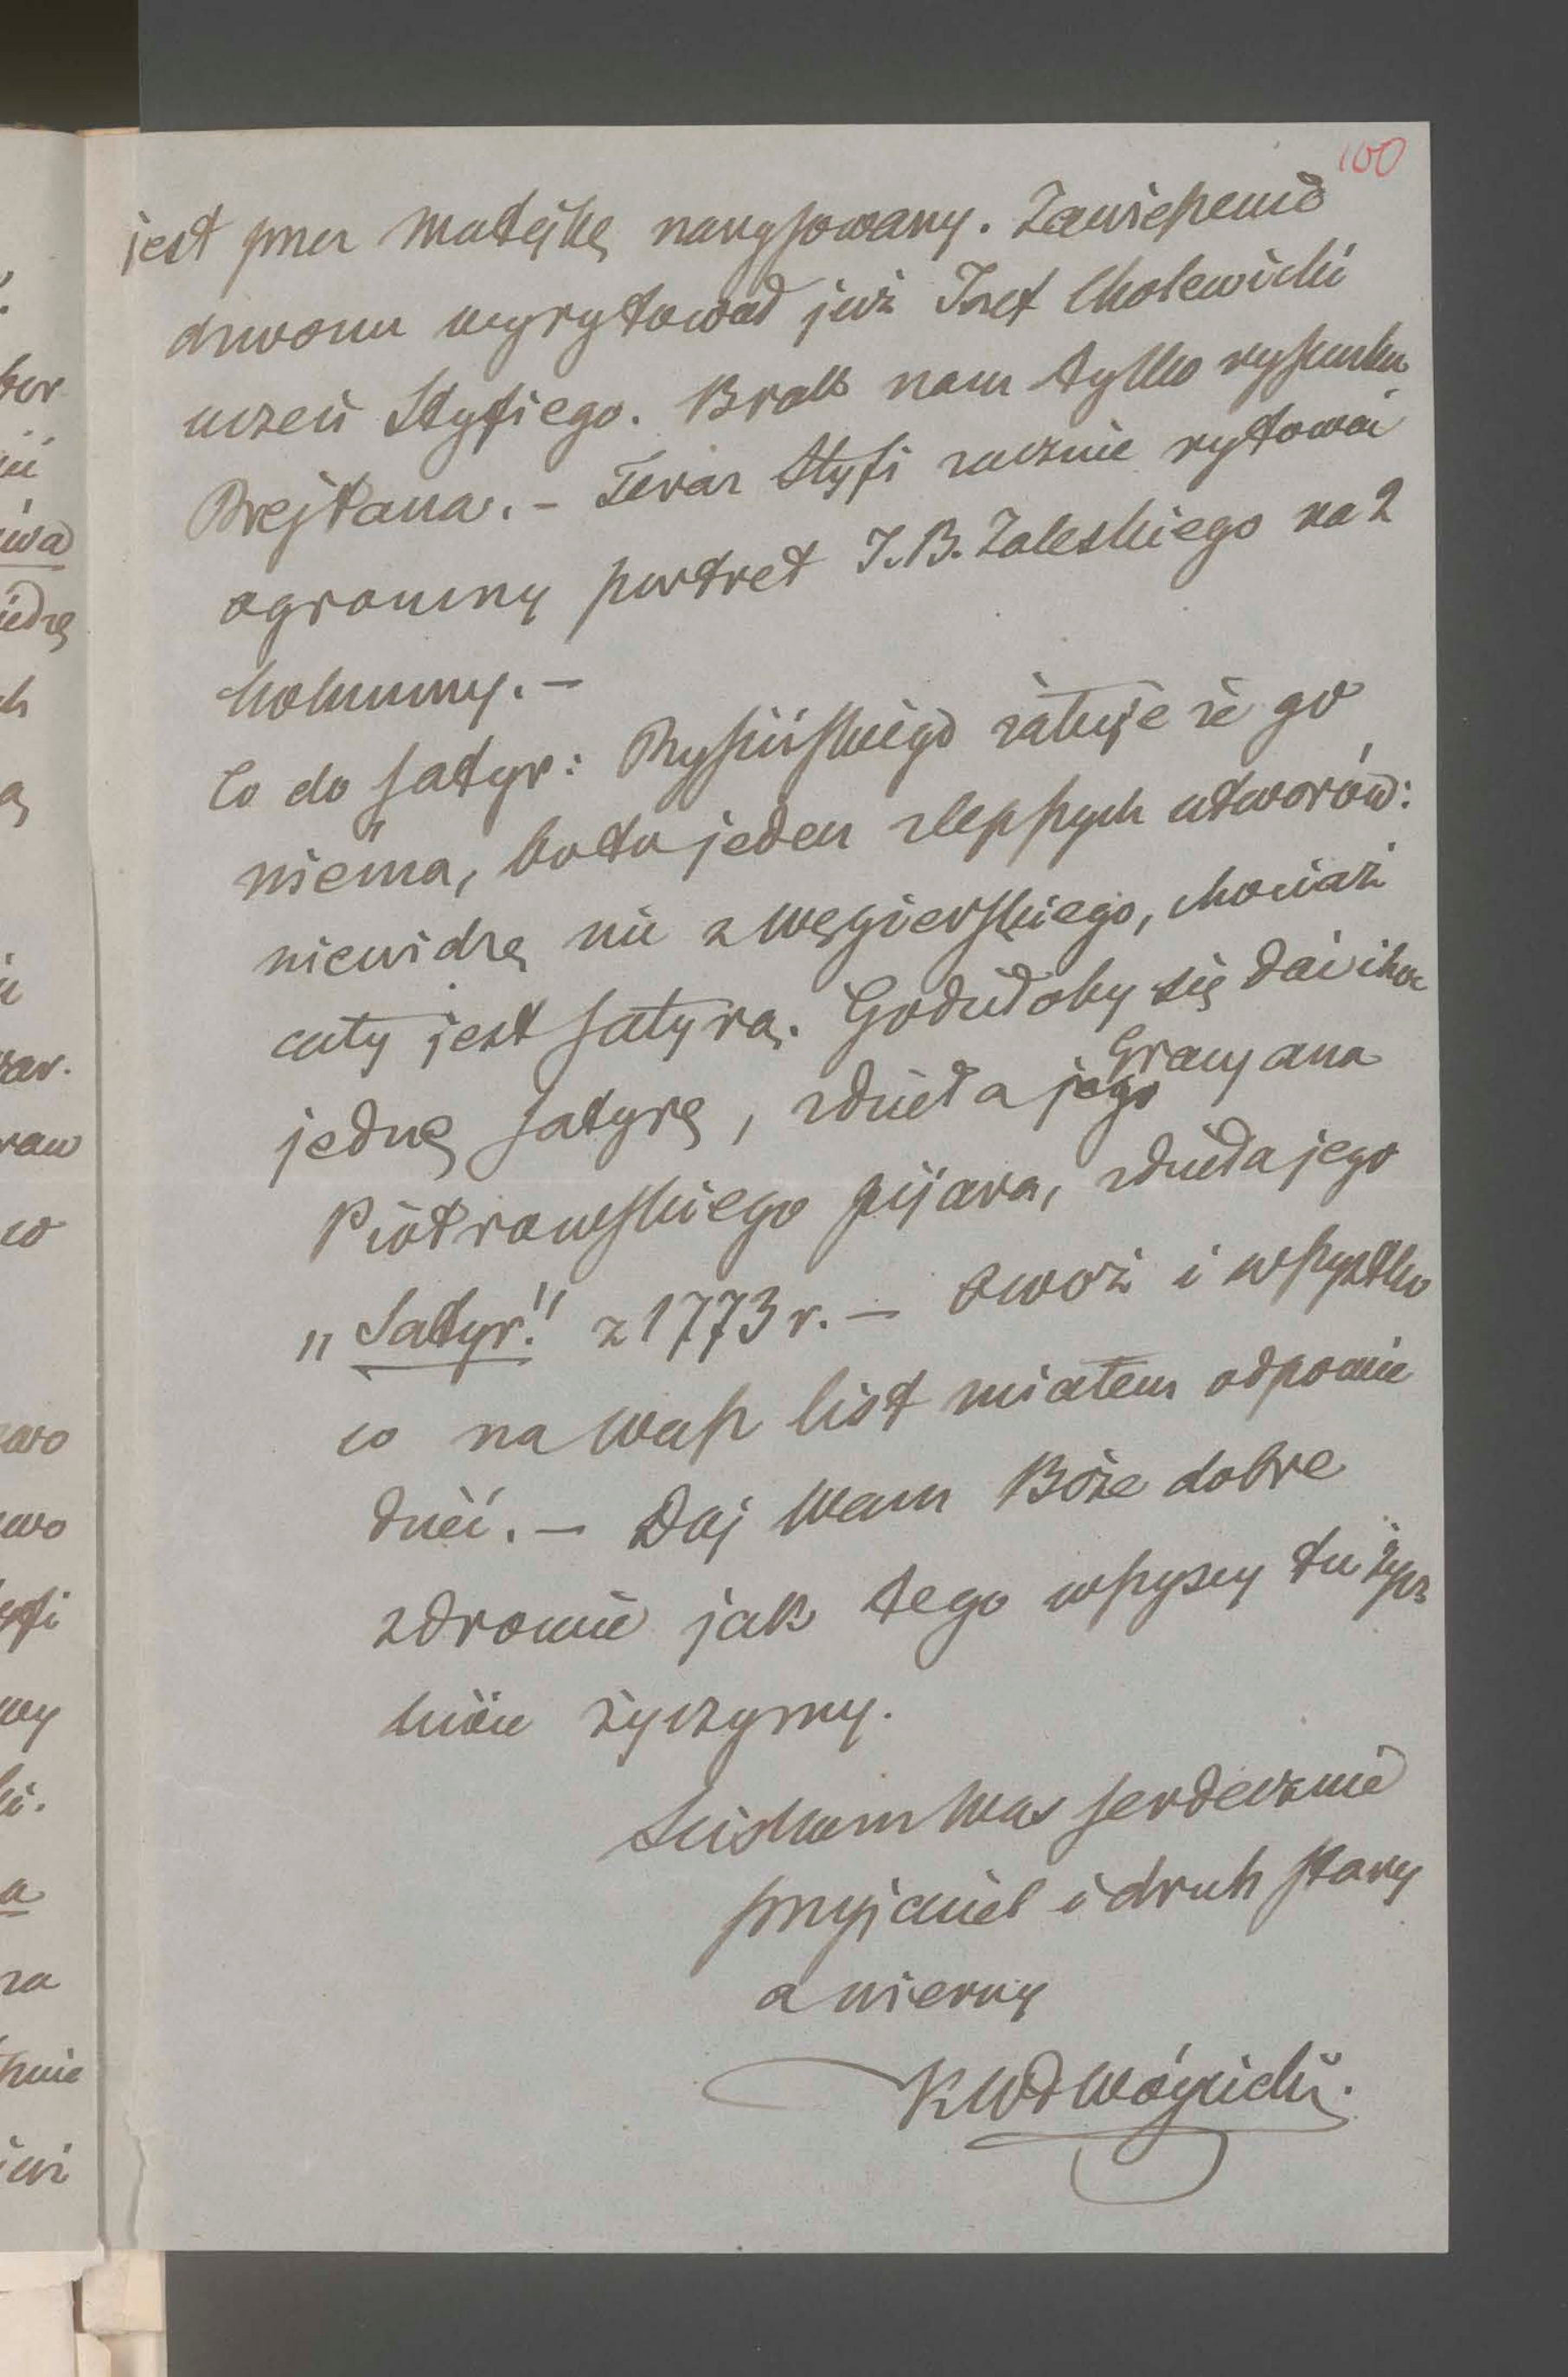 100
jest przez Matejkę narysowany. Zawieszenie
dzwonu wyrytował już Józef Cholewicki
uczeń Styfiego. Brak nam tylko rysunku
Rejtana. – Teraz Styfi zacznie rytować
ogromny portret J. B. Zaleskiego na 2
kolumny. –
Co do satyr: Rysińskiego żałuję że go
niéma, bo to jeden z lepszych utworów:
niewidzę nic z Węgierskiego, chociaż
cały jest satyrą. Godziłoby się dać choć
jednę satyrę, z dzieła jego Gracyana
Piotrowskiego pijara, z dzieła jego
„Satyr!" z 1773 r. – Owoż i wszystko
co na Wasz list miałem odpowie
dzieć. – Daj Wam Boże dobre
zdrowie jak tego wszyscy tu życz
liwie życzymy.
Sciskam Was serdecznie
przyjaciel i druh stary
a wierny
KWł Wójcicki.